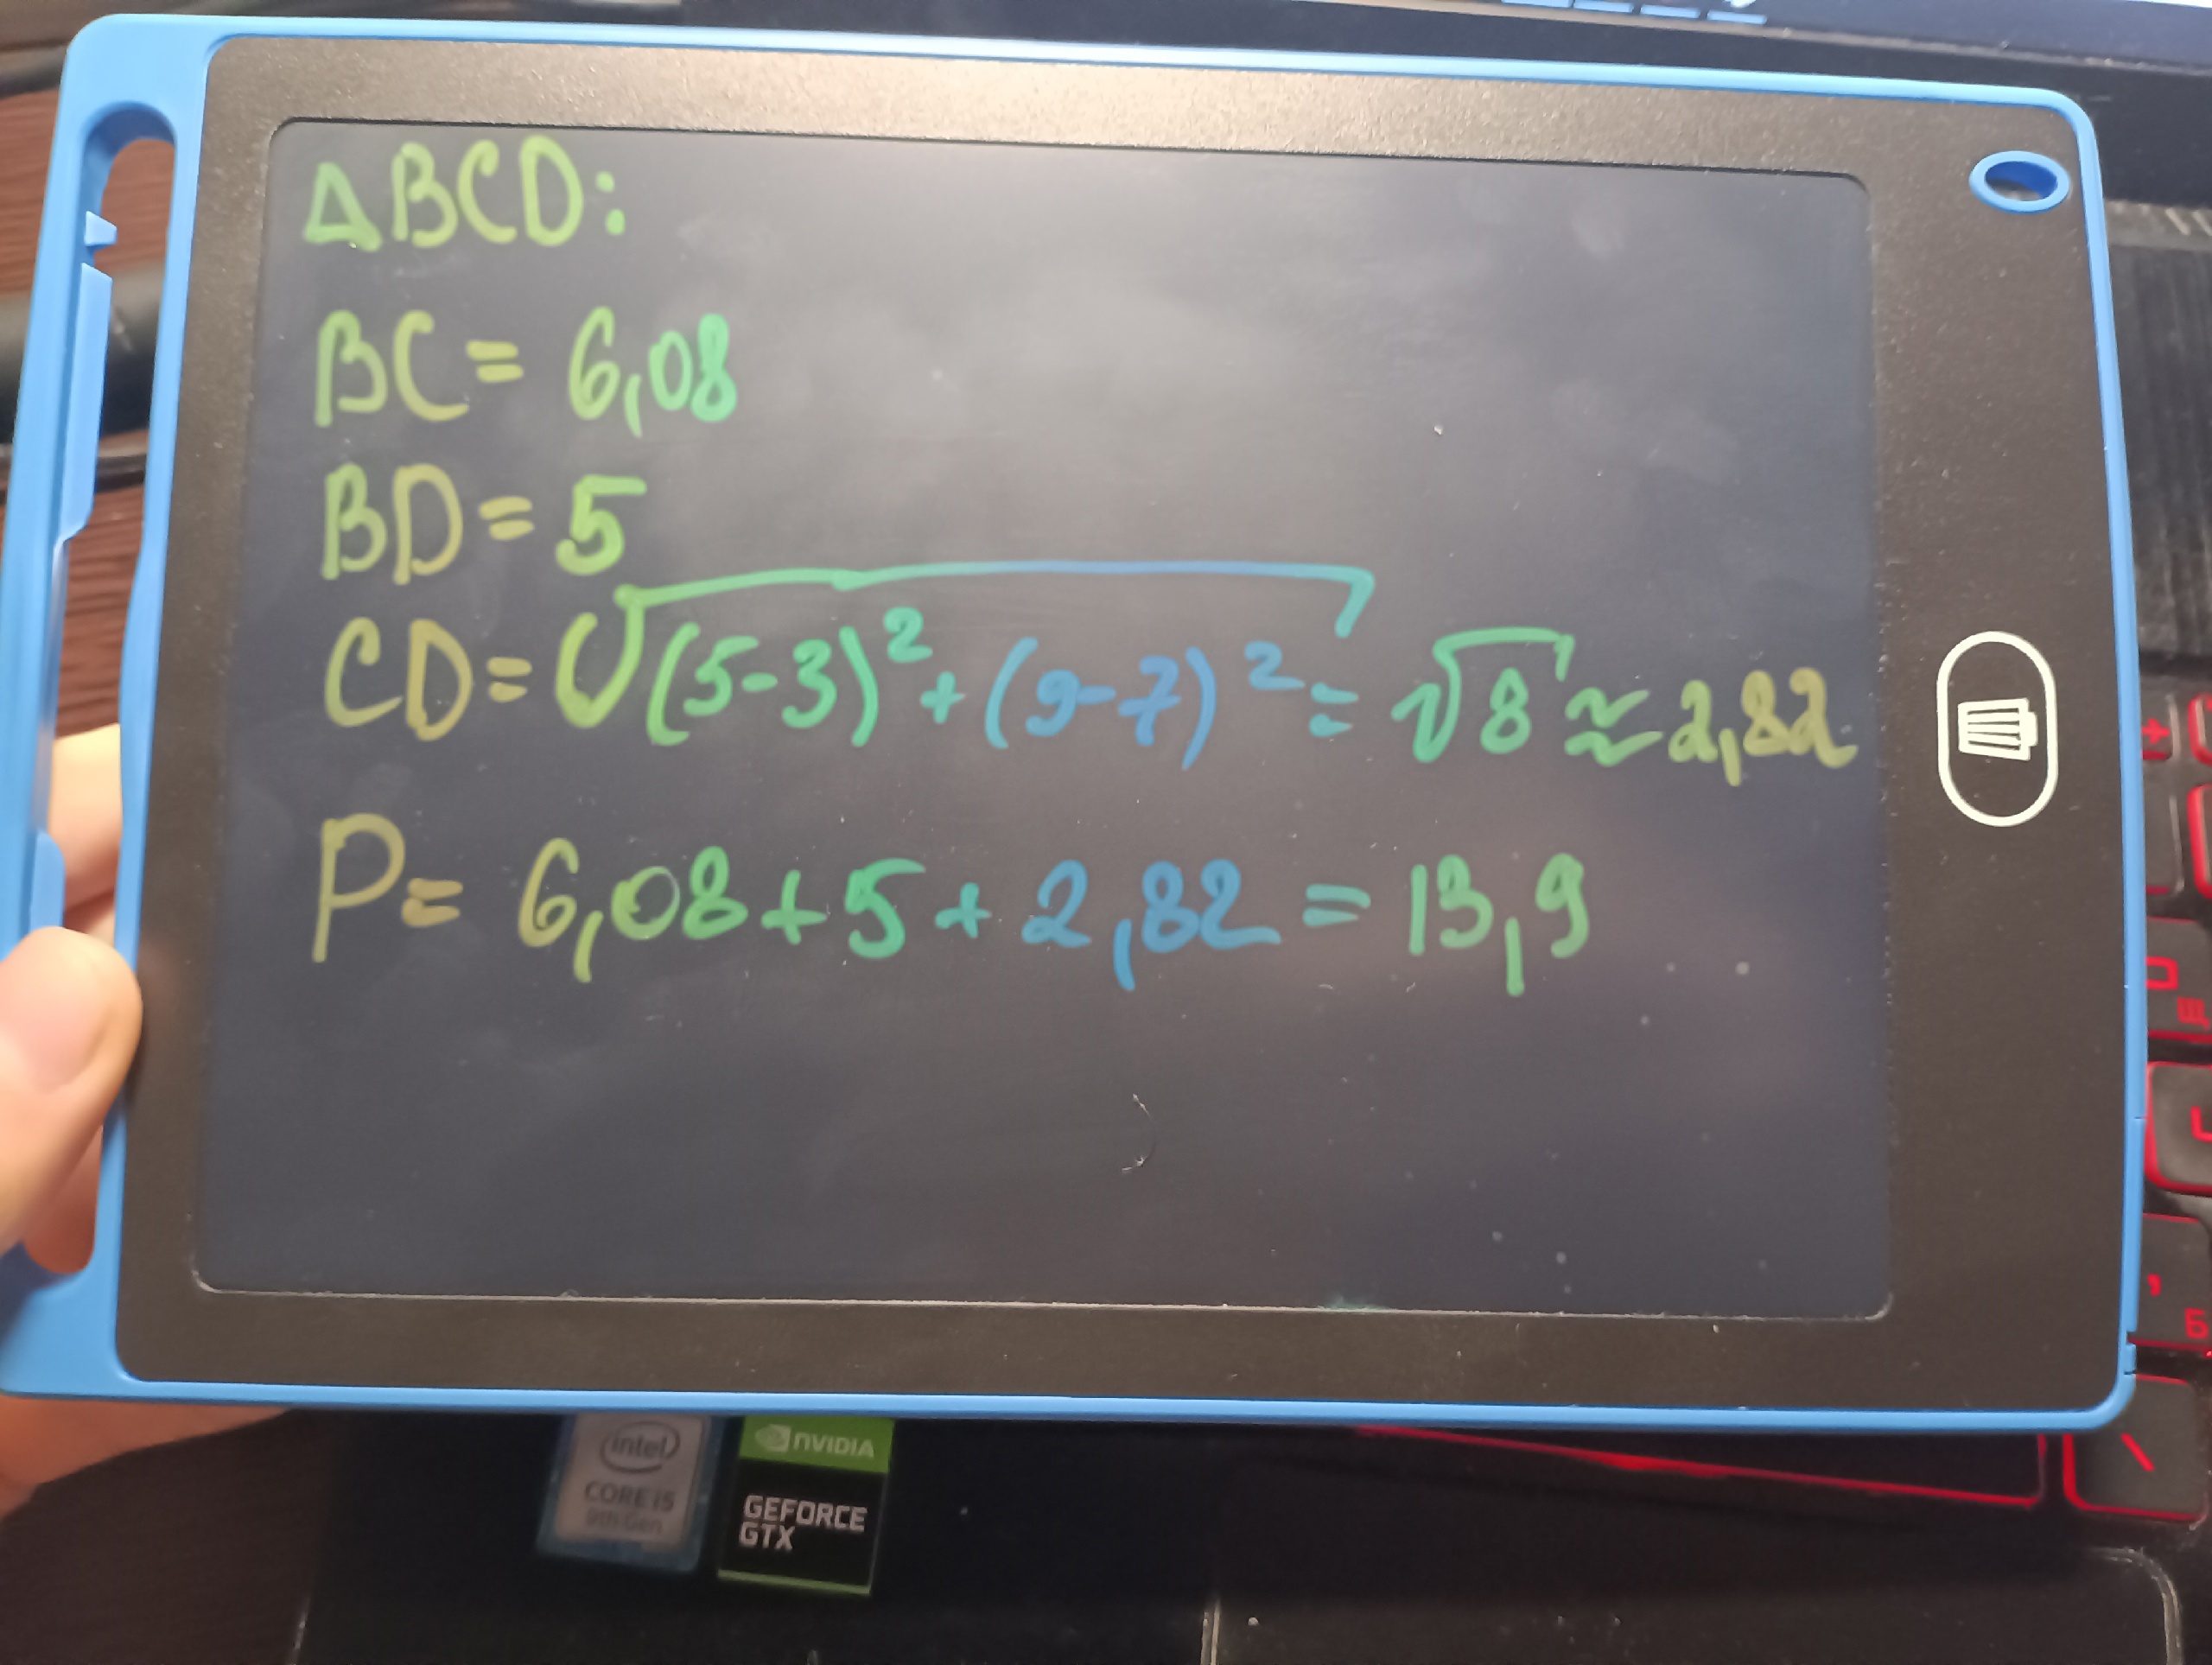 ΔBCD:
BC = 6,08
BD = 5
CD = √(5-3)² + (9-7)² = √8 ≈ 2,82
P = 6,08 + 5 + 2,82 = 13,9
intel
CORE i5
9th Gen
NVIDIA
GEFORCE
GTX
Б